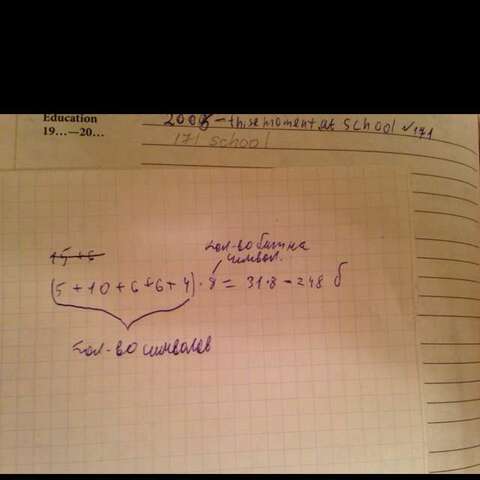 Education
19...—20...
2008 – this moment at school √171
171 school
15 + 6
кол-во бит на
символ.
(5 + 10 + 6 + 6 + 4) · 8 = 31 · 8 = 248 б
кол-во символов